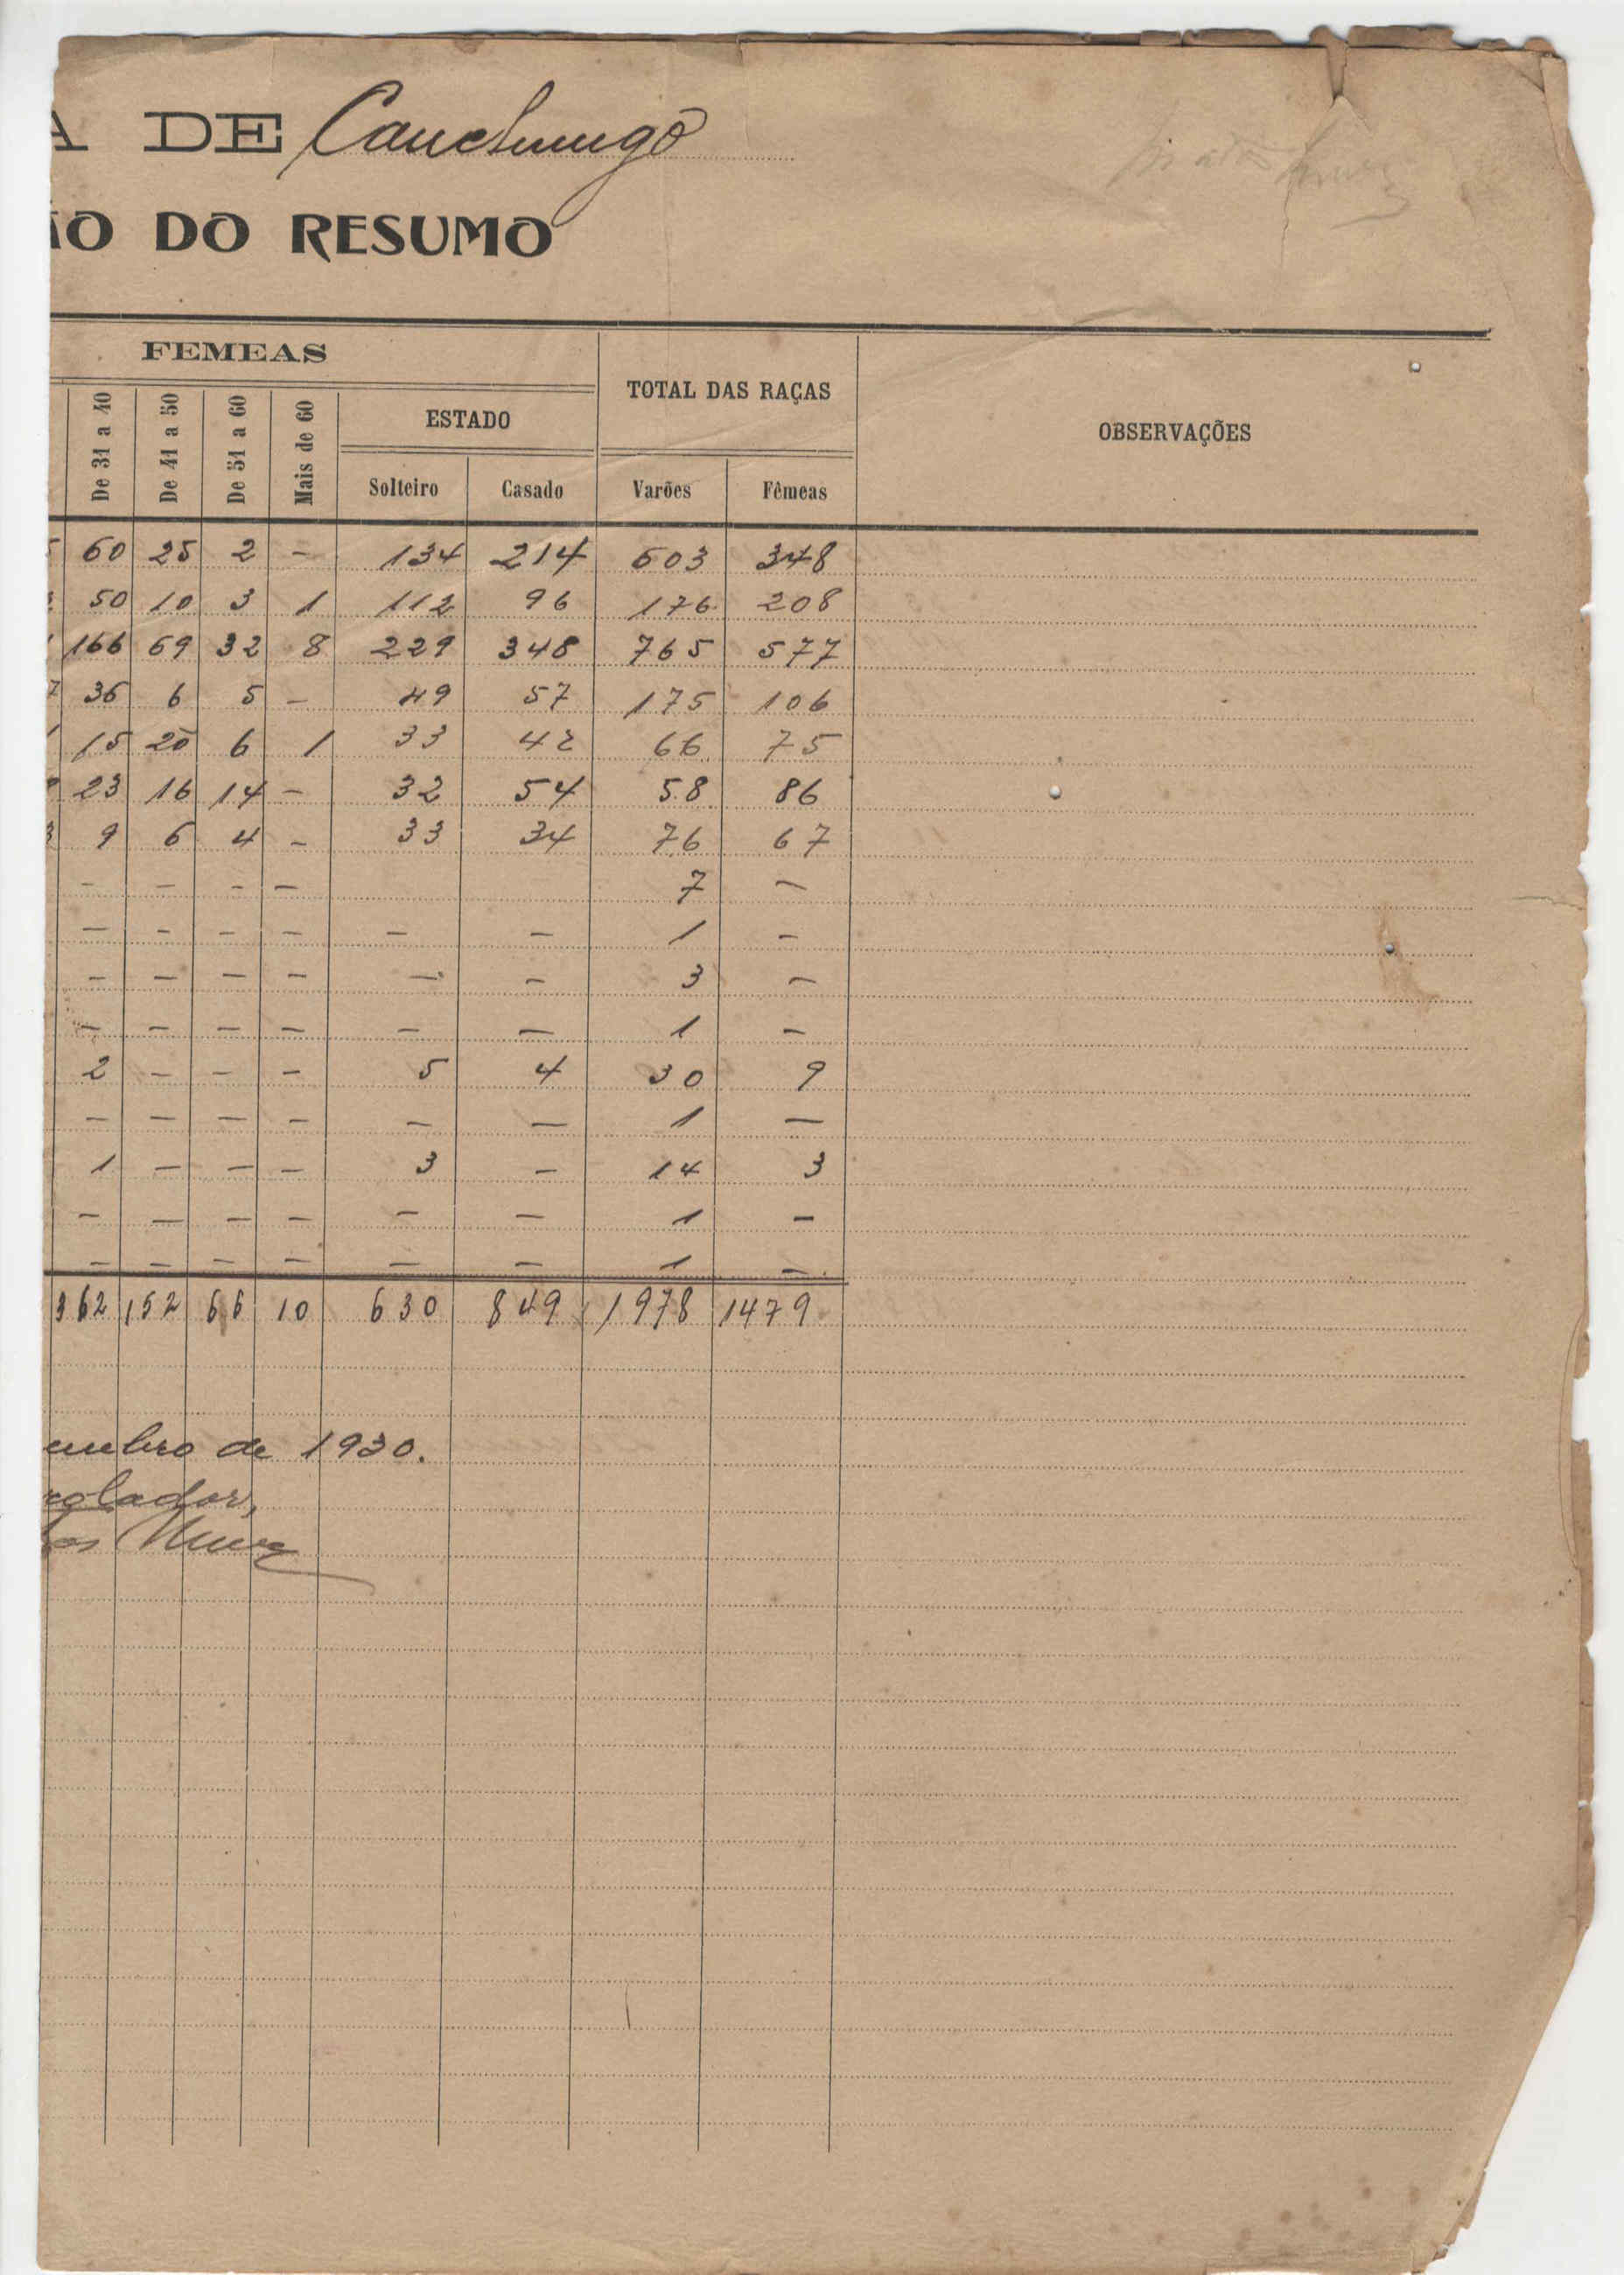 A DE Canchungo
ÃO DO RESUMO
FEMEAS
TOTAL DAS RAÇAS
OBSERVAÇÕES
De 31 a 40 De 41 a 50 De 51 a 60 Mais de 60
ESTADO
Solteiro Casado Varões Fêmeas
60 25 2 - 134 214 603 348
50 10 3 1 112 96 176 208
166 69 32 8 229 348 765 577
36 6 5 - 49 57 175 106
15 20 6 1 33 42 66 75
23 16 14 - 32 54 58 86
9 6 4 - 33 34 76 67
- - - - 7 -
- - - - - - 1 -
- - - - - - 3 -
- - - - - - 1 -
2 - - - 5 4 30 9
- - - - - - 1 -
1 - - - 3 - 14 3
- - - - - - 1 -
- - - - - - 1 -
362 152 66 10 630 849 1978 1479
embro de 1930.
rolador,